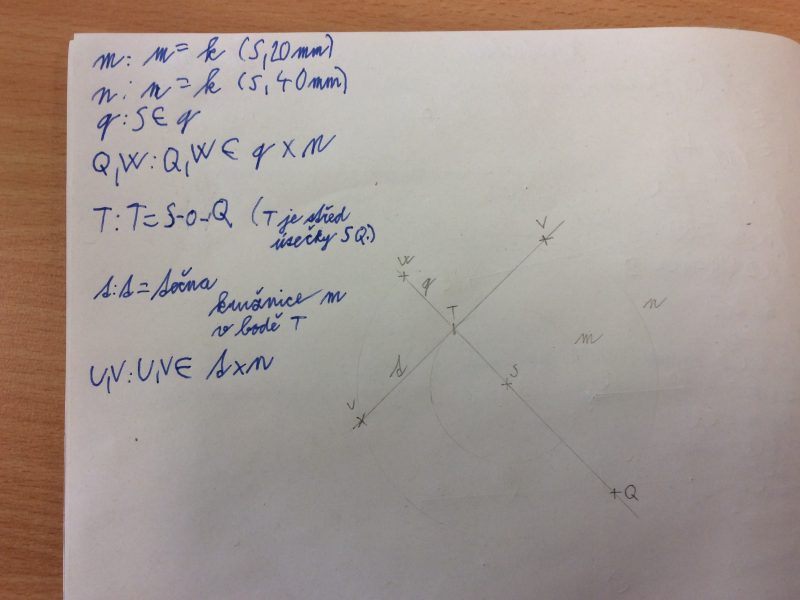 m: m = k (S, 20mm)
n: n = k (S, 40mm)
q: S ∈ q
Q, W: Q, W ∈ q × n
T: T = S-o-Q (T je střed
úsečky SQ.)
s: s = sečna
kružnice m
v bodě T
U, V: U, V ∈ s × n
V
W
q
T
n
m
s
S
V
Q